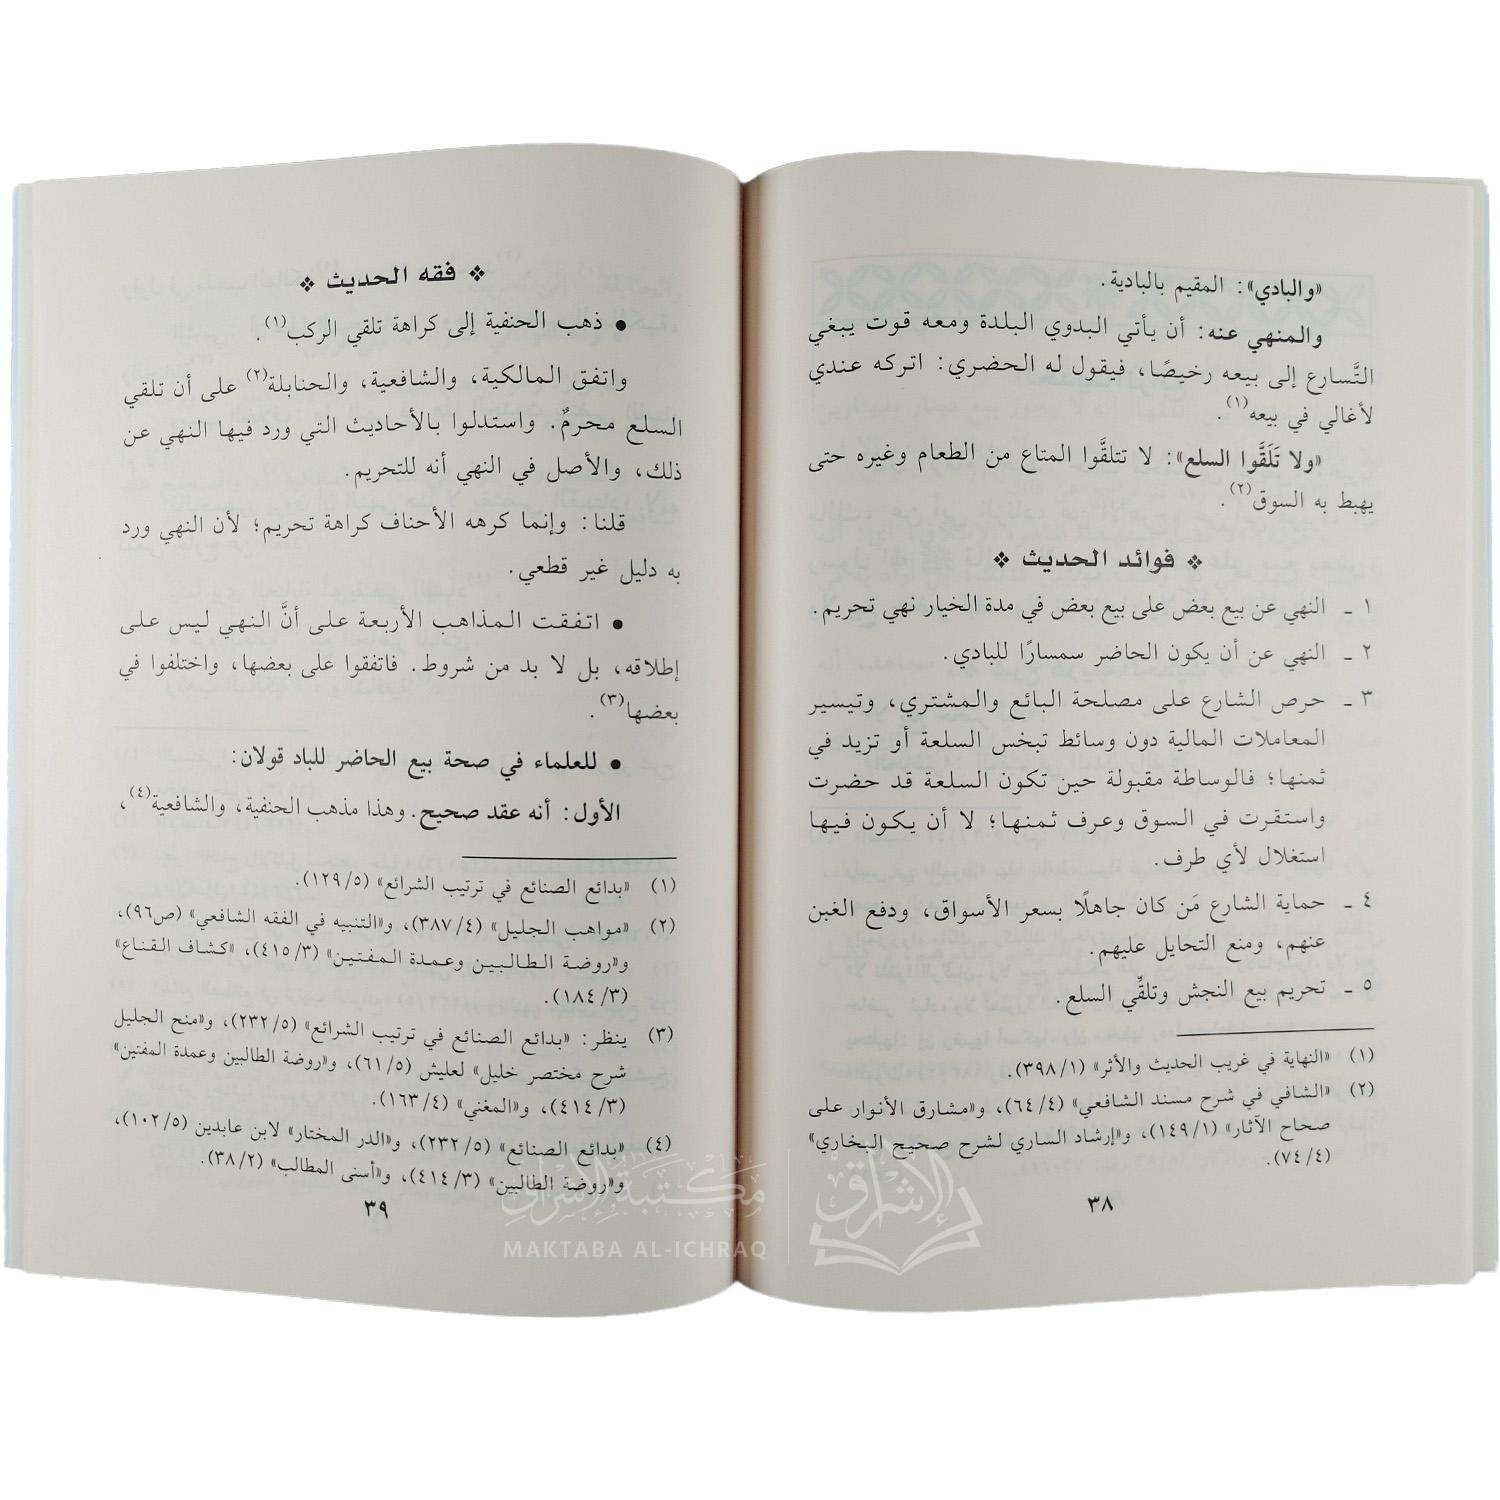 «والبادي»: المقيم بالبادية.
والمنهي عنه: أن يأتي البدوي البلدة ومعه قوت يبغي
التَّسارع إلى بيعه رخيصًا، فيقول له الحضري: اتركه عندي
لأغالي في بيعه(١).
«ولا تَلَقَّوا السلع»: لا تتلقَّوا المتاع من الطعام وغيره حتى
يهبط به السوق(٢).
❖ فوائد الحديث ❖
١ ـ النهي عن بيع بعض على بيع بعض في مدة الخيار نهي تحريم.
٢ ـ النهي عن أن يكون الحاضر سمسارًا للبادي.
٣ ـ حرص الشارع على مصلحة البائع والمشتري، وتيسير
المعاملات المالية دون وسائط تبخس السلعة أو تزيد في
ثمنها؛ فالوساطة مقبولة حين تكون السلعة قد حضرت
واستقرت في السوق وعرف ثمنها؛ لا أن يكون فيها
استغلال لأي طرف.
٤ ـ حماية الشارع مَن كان جاهلًا بسعر الأسواق، ودفع الغبن
عنهم، ومنع التحايل عليهم.
٥ ـ تحريم بيع النجش وتلقِّي السلع.
(١) «النهاية في غريب الحديث والأثر» (٣٩٨/١).
(٢) «الشافي في شرح مسند الشافعي» (٦٤/٤)، و«مشارق الأنوار على
صحاح الآثار» (١٤٩/١)، و«إرشاد الساري لشرح صحيح البخاري»
(٧٤/٤).
٣٨
❖ فقه الحديث ❖
● ذهب الحنفية إلى كراهة تلقي الركب(١).
واتفق المالكية، والشافعية، والحنابلة(٢) على أن تلقي
السلع محرمٌ. واستدلوا بالأحاديث التي ورد فيها النهي عن
ذلك، والأصل في النهي أنه للتحريم.
قلنا: وإنما كرهه الأحناف كراهة تحريم؛ لأن النهي ورد
به دليل غير قطعي.
● اتفقت المذاهب الأربعة على أنَّ النهي ليس على
إطلاقه، بل لا بد من شروط. فاتفقوا على بعضها، واختلفوا في
بعضها(٣).
● للعلماء في صحة بيع الحاضر للباد قولان:
الأول: أنه عقد صحيح. وهذا مذهب الحنفية، والشافعية(٤)،
(١) «بدائع الصنائع في ترتيب الشرائع» (١٢٩/٥).
(٢) «مواهب الجليل» (٣٨٧/٤)، و«التنبيه في الفقه الشافعي» (ص٩٦)،
و«روضة الطالبين وعمدة المفتين» (٤١٥/٣)، «كشاف القناع»
(١٨٤/٣).
(٣) ينظر: «بدائع الصنائع في ترتيب الشرائع» (٢٣٢/٥)، و«منح الجليل
شرح مختصر خليل» لعليش (٦١/٥)، و«روضة الطالبين وعمدة المفتين»
(٤١٤/٣)، و«المغني» (١٦٣/٤).
(٤) «بدائع الصنائع» (٢٣٢/٥)، و«الدر المختار» لابن عابدين (١٠٢/٥)،
و«روضة الطالبين» (٤١٤/٣)، و«أسنى المطالب» (٣٨/٢).
٣٩
مكتبة الإشراق
MAKTABA AL-ICHRAQ
الإشراق